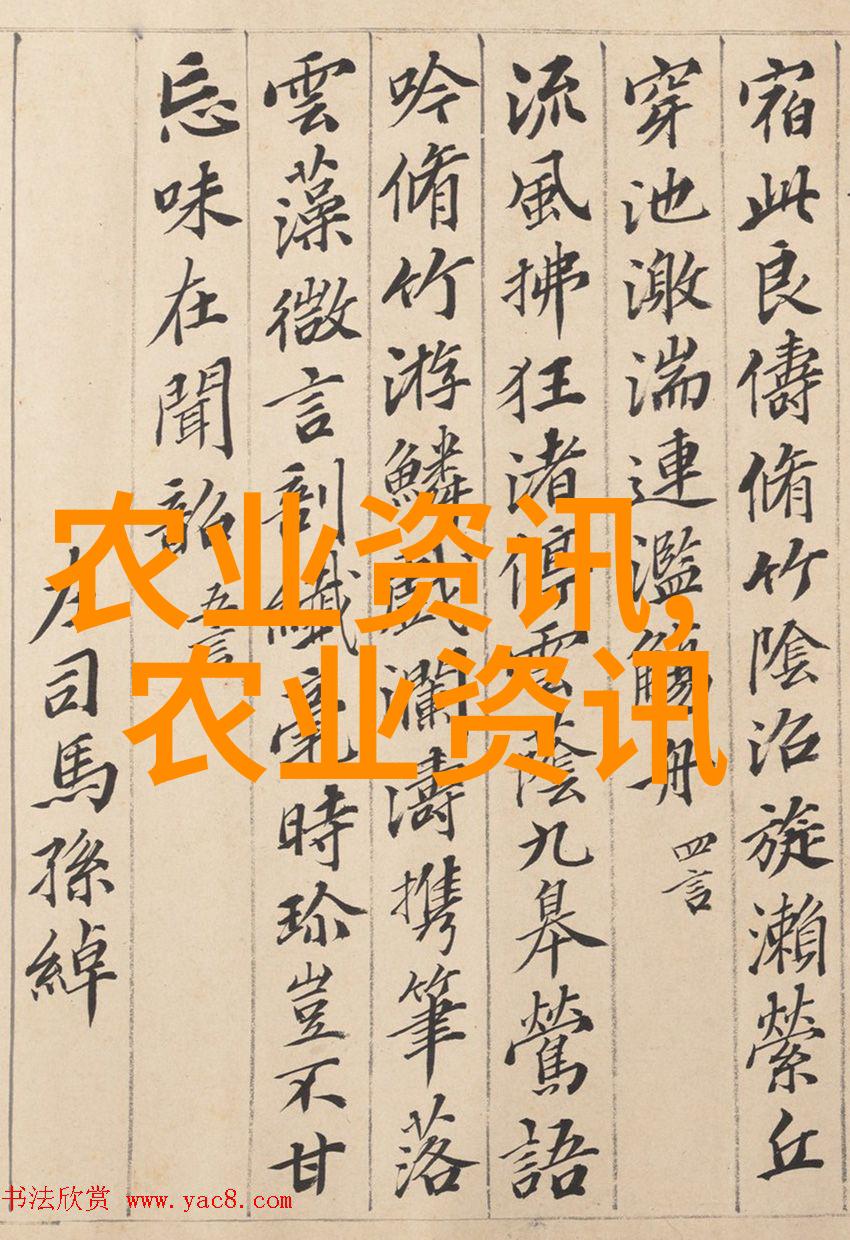 宿此良儔脩竹陰沼旋瀨縈丘
穿池激湍連濫觴舟 四言
流風拂狂渚停雲蔭九皋鶯語
吟脩竹游鱗戲瀾濤携筆落
雲藻微言剖纖毫時珍豈不甘
忘味在聞韶 五言
左司馬孫綽
农业资讯,
农业资讯
书法欣赏 www.yac8.com